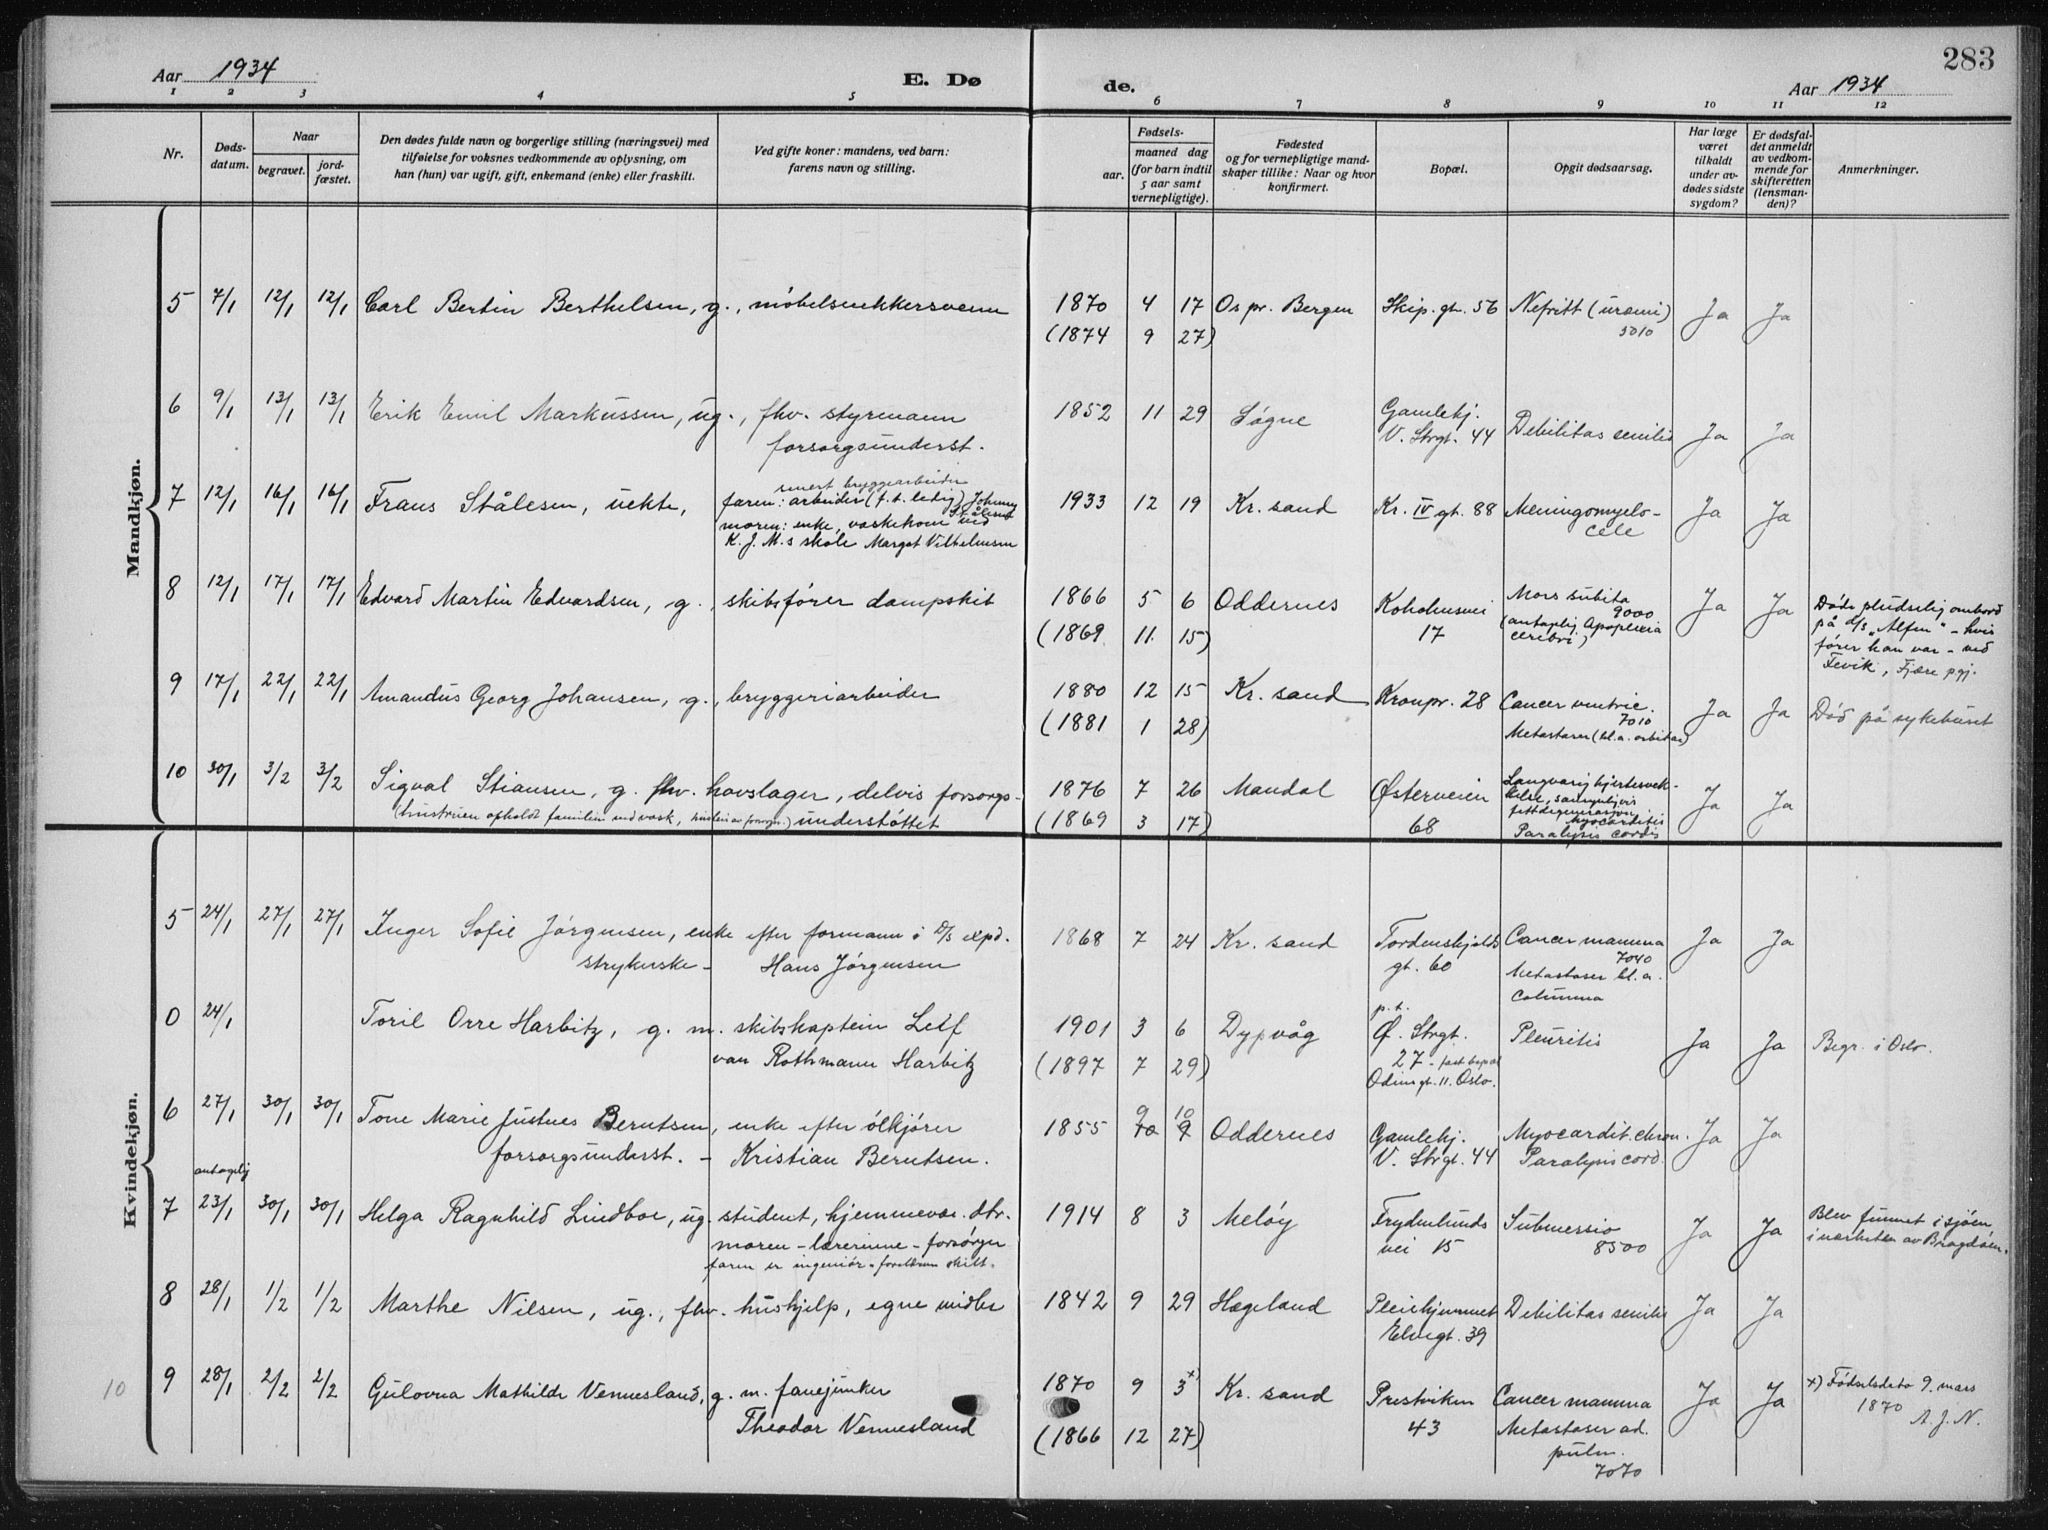 283
Aar 1934 E. Døde. Aar 1934
1 2 3 4 5 6 7 8 9 10 11 12
Nr.
Døds-
datum.
Naar
begravet.
jord-
fæstet.
Den dødes fulde navn og borgerlige stilling (næringsvei) med
tilføielse for voksnes vedkommende av oplysning, om
han (hun) var ugift, gift, enkemand (enke) eller fraskilt.
Ved gifte koner: mandens, ved barn:
farens navn og stilling.
Fødsels-
aar.
maaned dag
(for barn indtil
5 aar samt
vernepligtige).
Fødested
og for vernepligtige mand-
skaper tillike: Naar og hvor
konfirmert.
Bopæl.
Opgit dødsaarsag.
Har læge
været
tilkaldt
under av-
dødes sidste
sygdom?
Er dødsfal-
det anmeldt
av vedkom-
mende for
skifteretten
(lensman-
den)?
Anmerkninger.
Mandkjøn.
5 7/1 12/1 12/1 Carl Bertin Berthelsen, g., møbelsnekkersvenn 1870 4 17 Os pr. Bergen Skip. gt. 56 Nefritt (uræmi) Ja Ja
5010
(1874 9 27)
6 9/1 13/1 13/1 Erik Emil Markussen, ug., fhv. styrmann 1852 11 29 Søgne Gamlehj. Debilitas senilis Ja Ja
forsorgsunderst. V. Strgt. 44
7 12/1 16/1 16/1 Frans Stålesen, uekte, 1933 12 19 Kr. sand Kr. IV gt. 88 Meningomyelo- Ja Ja
cele
senest bryggearbeider
faren: arbeider (f.t. ledig) Johnny
Stålesen
moren: enke, vaskekone ved
K. J. M.s skole Margot Vilhelmsen
8 12/1 17/1 17/1 Edvard Martin Edvardsen, g., skibsfører dampskib 1866 5 6 Oddernes Koholmsvei Mors subita Ja Ja
9000
17 (antagelig Apoplexia
cerebri)
(1869 11 15)
Døde pludselig ombord
på d/s "Alfen" - hvis
fører han var - ved
Fevik, Fjære pgj.
9 17/1 22/1 22/1 Amandus Georg Johansen, g., bryggeriarbeider 1880 12 15 Kr. sand Kronpr. 28 Cancer ventric. Ja Ja Død på sykehuset
7010
(1881 1 28) Metastaser (bl.a. orbitae)
10 30/1 3/2 3/2 Sigval Stiansen, g. fhv. hovslager, delvis forsorgs- 1876 7 26 Mandal Østerveien Ja Ja
(hustruen opholdt familien med vask, ) understøttet (1869 3 17) 68
Langvarig hjertesvek-
kelse, sannsynligvis
fettdegenerasjon
Myocarditis
Paralysis cordis
Kvindekjøn.
5 24/1 27/1 27/1 Inger Sofie Jørgensen, enke efter formann i D/S exped. 1868 7 24 Kr. sand Tordenskjolds Cancer mamma Ja Ja
strykerske - Hans Jørgensen gt. 60
7040
Metastaser bl. a.
columna
0 24/1 Toril Orre Harbitz, g. m. skibskaptein Leif 1901 3 6 Dypvåg Pleuritis Ja Ja Begr. i Oslo.
van Rothmann Harbitz (1897 7 29)
p.t.
Ø. Strgt.
27 - fast bopæl
Odins gt. 11. Oslo.
6 27/1 30/1 30/1 Tone Marie Justnes Berntsen, enke efter ølkjører 1855 9 10 Oddernes Gamlehj. Myocardit. chron. Ja Ja
10 9
forsorgsunderst. - Kristian Berntsen. V. Strgt. 44 Paralysis cord.
antagelig
7 23/1 30/1 30/1 Helga Ragnhild Lindboe, ug. student, hjemmevær. dtr. 1914 8 3 Meløy Frydenlunds Submersio Ja Ja Blev funnet i sjøen
vei 15 8500 i nærheten av Bragdøen.
moren - lærerinne - forsørger
faren er ingeniør - foreldrene skilt.
8 28/1 1/2 1/2 Marthe Nilsen, ug., fhv. hushjelp, egne midler 1842 9 29 Hægeland Pleiehjemmet Debilitas senilis Ja Ja
Elvegt. 39
10 9 28/1 2/2 2/2 Gulovna Mathilde Vennesland, g. m. fanejunker 1870 9 3 x) Kr. sand Prestviken Cancer mamma Ja Ja x) Fødselsdato 9. mars
Theodor Vennesland (1866 12 27) 43 Metastaser ad. 1870
pulm. A. J. N.
7070